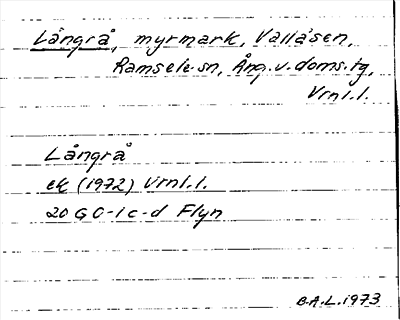 Långrå, myrmark, Vallåsen,
Ramsele sn, Ång. v. doms. tg,
Vrnl. l.
Långrå
ek (1972) Vrnl. l.
20 G 0-1 c-d Flyn
B.A.L. 1973